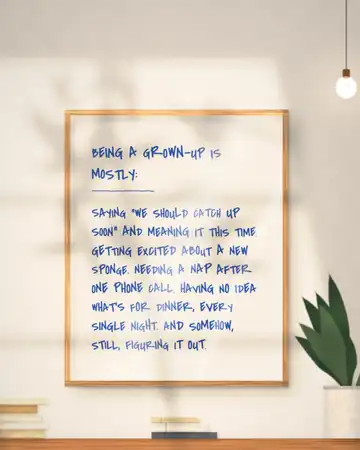 BEING A GROWN-UP IS
MOSTLY:
SAYING "WE SHOULD CATCH UP
SOON" AND MEANING IT THIS TIME
GETTING EXCITED ABOUT A NEW
SPONGE. NEEDING A NAP AFTER
ONE PHONE CALL. HAVING NO IDEA
WHAT'S FOR DINNER, EVERY
SINGLE NIGHT. AND SOMEHOW,
STILL, FIGURING IT OUT.